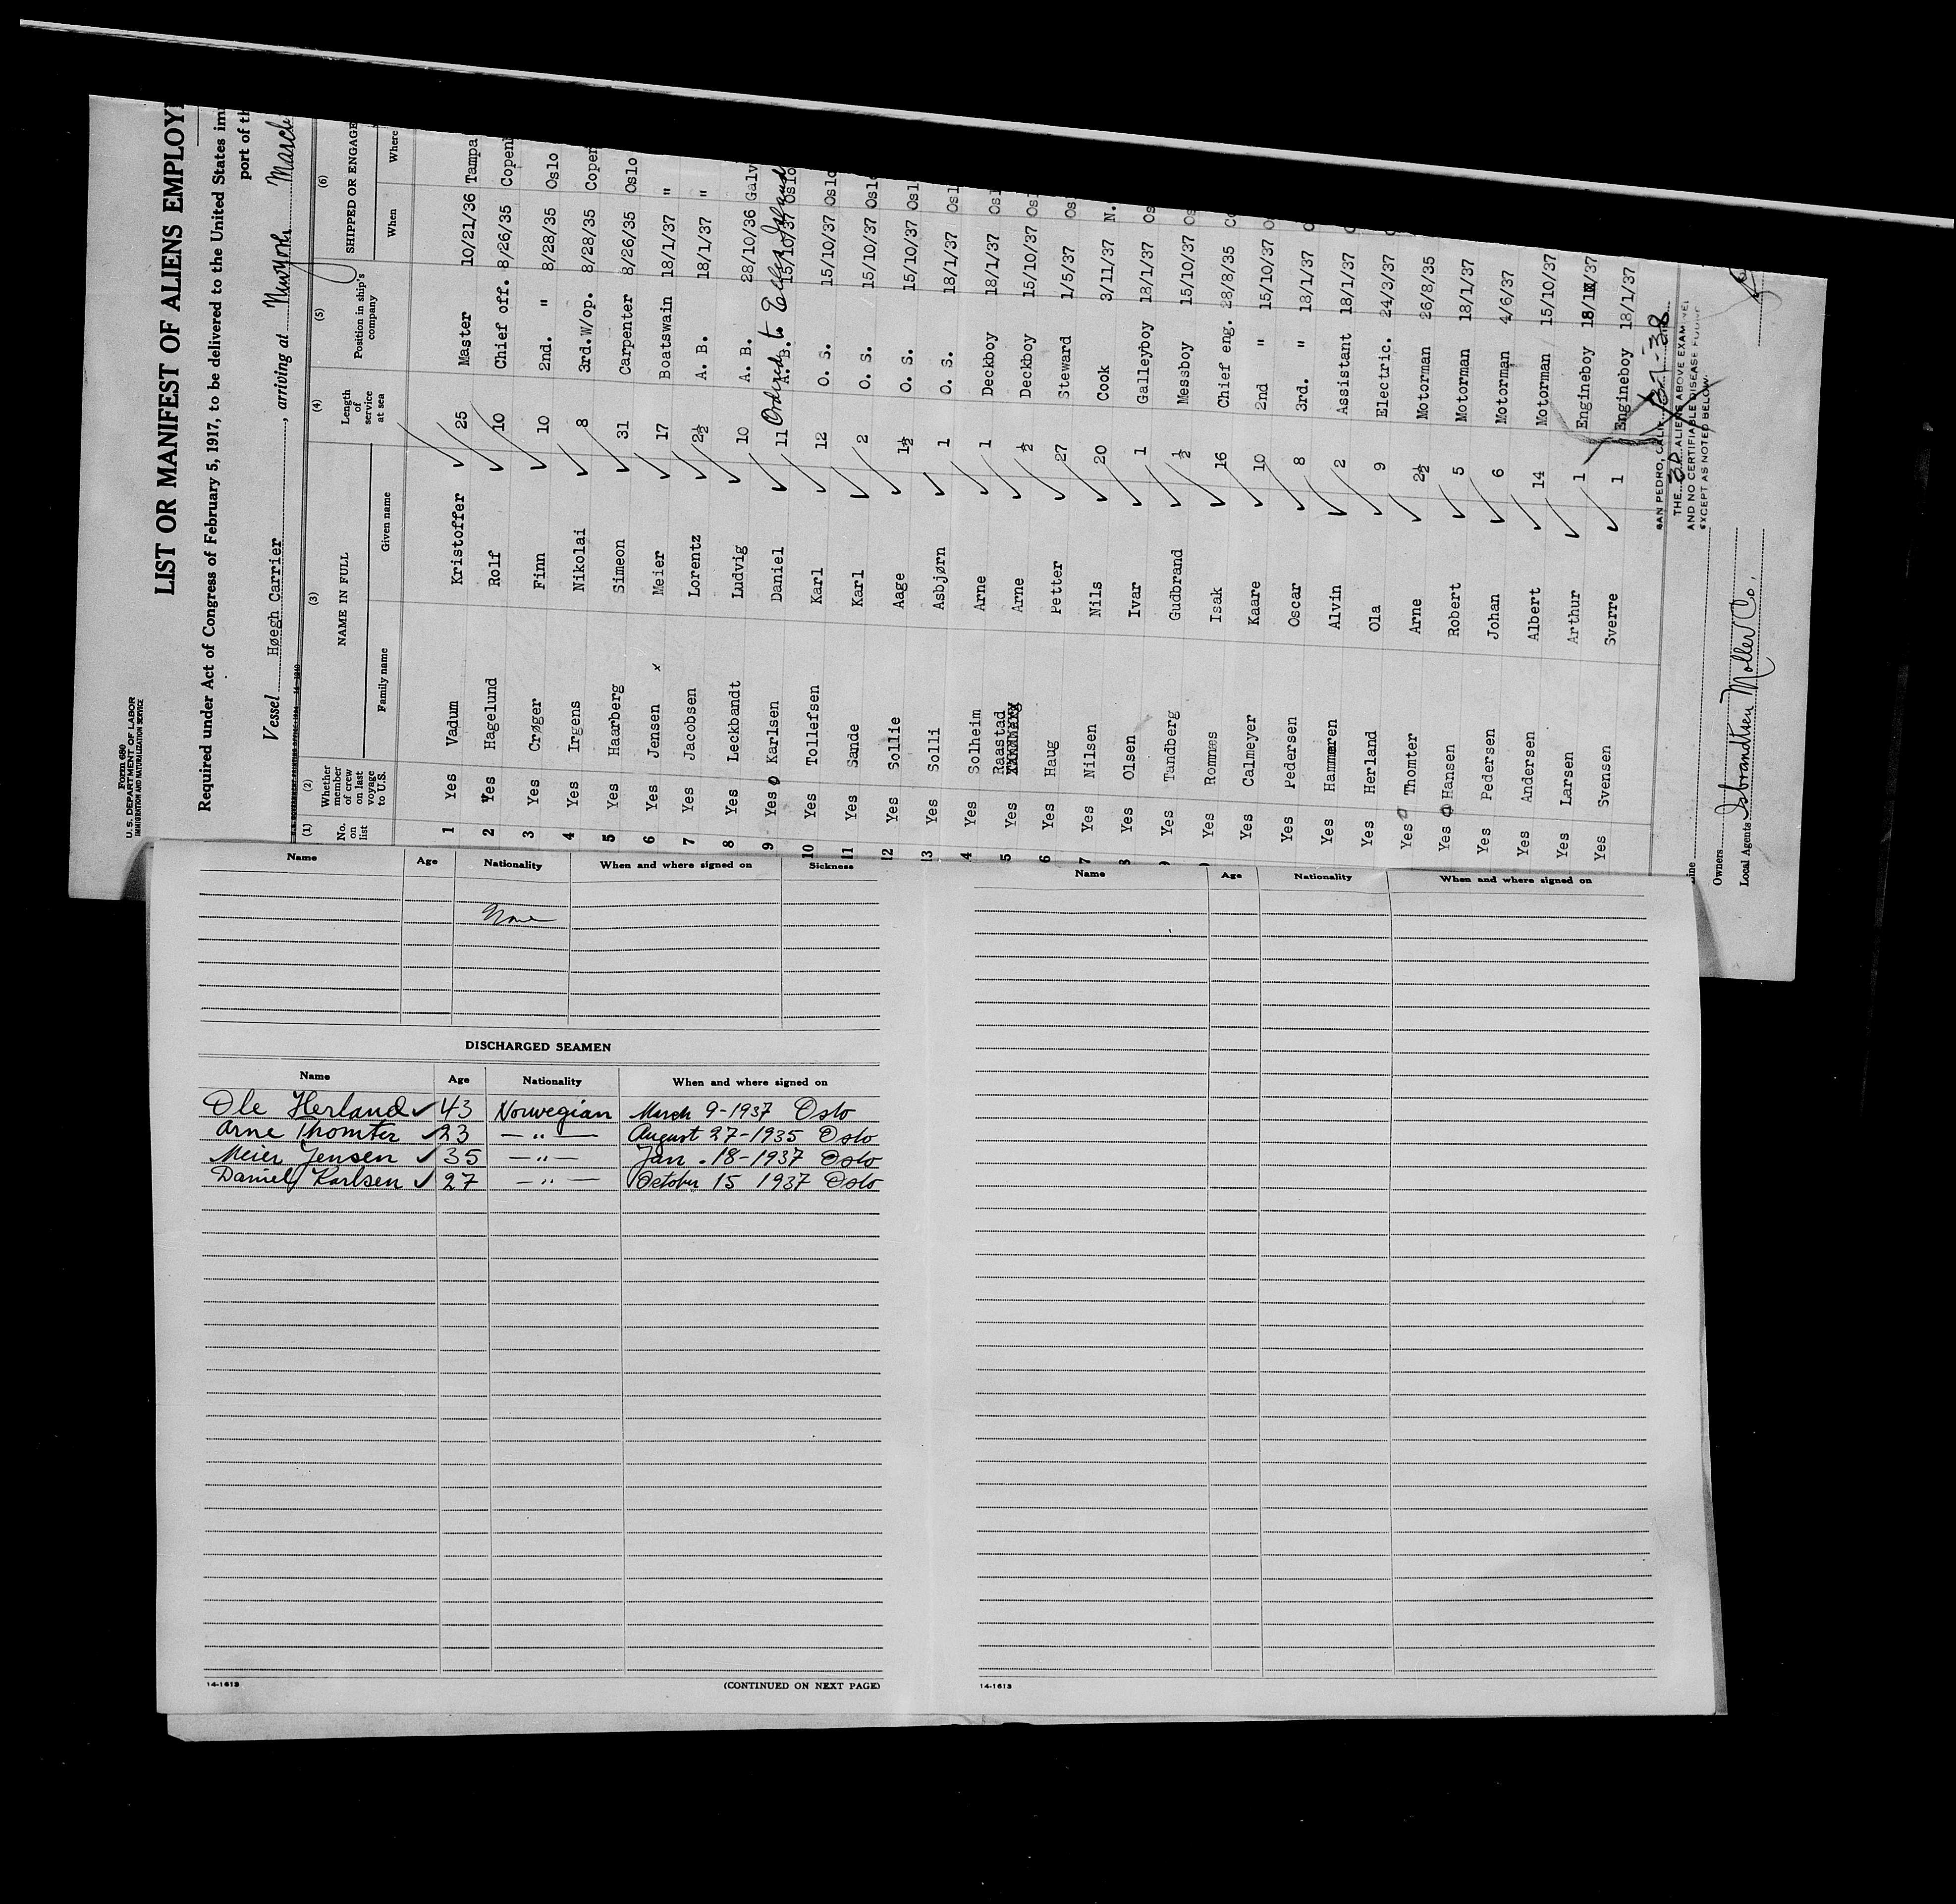 Form 680
U. S. DEPARTMENT OF LABOR
IMMIGRATION AND NATURALIZATION SERVICE
LIST OR MANIFEST OF ALIENS EMPLOY
Required under Act of Congress of February 5, 1917, to be delivered to the United States im
port of th
Vessel Høegh Carrier, arriving at New York March
(1) (2) (3) (4) (5) (6)
No. on list Whether member of crew on last voyage to U.S. NAME IN FULL Length of service at sea Position in ship's company SHIPPED OR ENGAGE
Family name Given name When Where
1 Yes Vadum Kristoffer 25 Master 10/21/36 Tampa
2 Yes Hagelund Rolf 10 Chief off. 8/26/35 Copen
3 Yes Crøger Finn 10 2nd. " 8/28/35 Oslo
4 Yes Irgens Nikolai 8 3rd.W/op. 8/28/35 Coper
5 Yes Haarberg Simeon 31 Carpenter 8/26/35 Oslo
6 Yes Jensen x Meier 17 Boatswain 18/1/37 "
7 Yes Jacobsen Lorentz 2½ A. B. 18/1/37 "
8 Yes Leckbandt Ludvig 10 A. B. 28/10/36 Galv
Ordered to Ellis Island
9 Yes Karlsen Daniel 11 A. B. 15/10/37 Oslo
10 Yes Tollefsen Karl 12 O. S. 15/10/37 Oslo
11 Yes Sande Karl 2 O. S. 15/10/37 Oslo
12 Yes Sollie Aage 1½ O. S. 15/10/37 Osl
13 Yes Solli Asbjørn 1 O. S. 18/1/37 Osl
4 Yes Solheim Arne 1 Deckboy 18/1/37 Osl
5 Yes Raastad Arne ½ Deckboy 15/10/37 Osl
6 Yes Haug Petter 27 Steward 1/5/37 Os
7 Yes Nilsen Nils 20 Cook 3/11/37 N.
8 Yes Olsen Ivar 1 Galleyboy 18/1/37 Os
9 Yes Tandberg Gudbrand ½ Messboy 15/10/37 Os
Yes Romnes Isak 16 Chief eng. 28/8/35 Co
Yes Calmeyer Kaare 10 2nd " 15/10/37 O
Yes Pedersen Oscar 8 3rd. " 18/1/37
Yes Hammæren Alvin 2 Assistant 18/1/37
Yes Herland Ola 9 Electric. 24/3/37
Yes Thomter Arne 2½ Motorman 26/8/35
Yes Hansen Robert 5 Motorman 18/1/37
Yes Pedersen Johan 6 Motorman 4/6/37
Yes Andersen Albert 14 Motorman 15/10/37
Yes Larsen Arthur 1 Engineboy 18/1/37
Yes Svensen Sverre 1 Engineboy 18/1/37
SAN PEDRO, CALIF.
THE 30 ALIENS ABOVE EXAMINED
AND NO CERTIFIABLE DISEASE FOUND
EXCEPT AS NOTED BELOW.
ine
Owners
Local Agents Isbrandtsen Moller Co.
Name Age Nationality When and where signed on Sickness
None
DISCHARGED SEAMEN
Name Age Nationality When and where signed on
Ole Herland 43 Norwegian March 9-1937 Oslo
Arne Thomter 23 — " — August 27-1935 Oslo
Meier Jensen 35 — " — Jan. 18-1937 Oslo
Daniel Karlsen 27 — " — October 15 1937 Oslo
14-1613 (CONTINUED ON NEXT PAGE)
Name Age Nationality When and where signed on
14-1613